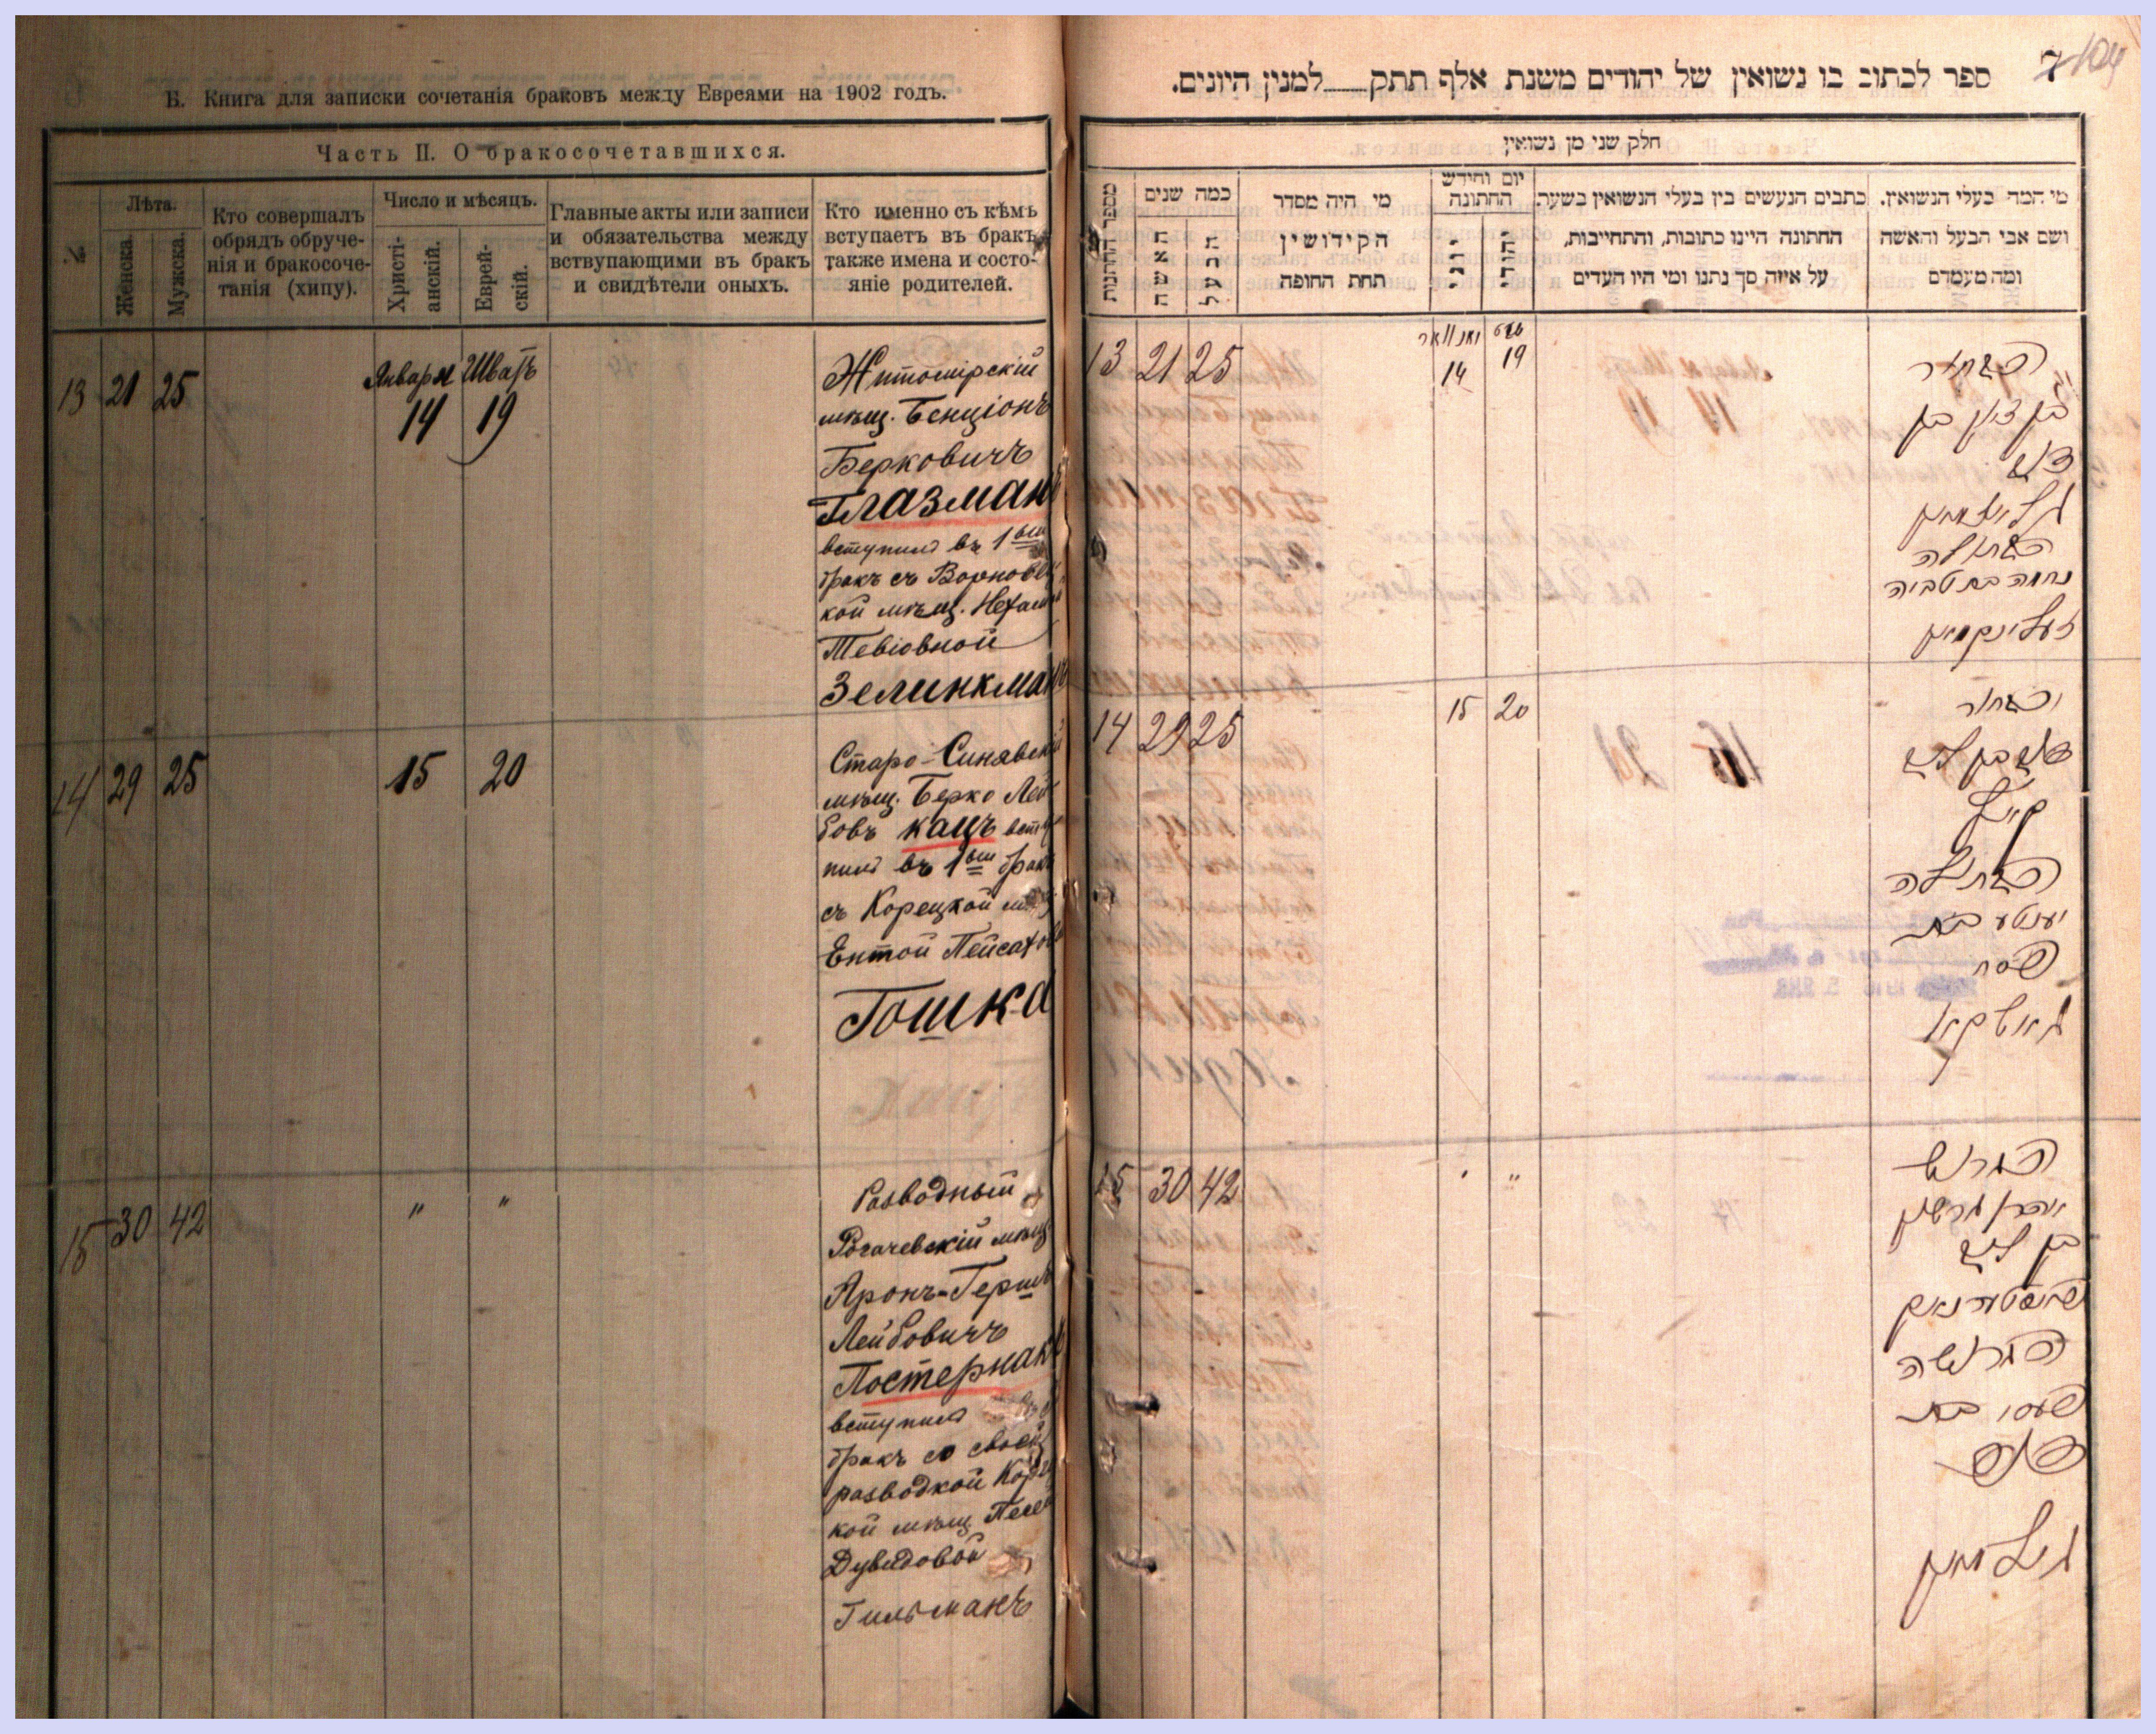 Б. Книга для записки сочетанія браковъ между Евреями на 1902 годъ.
Часть II. О бракосочетавшихся.
№
Лѣта.
Женска.
Мужска.
Кто совершалъ
обрядъ обруче-
нія и бракосоче-
танія (хипу).
Число и мѣсяцъ.
Христі-
анскій.
Еврей-
скій.
Главные акты или записи
и обязательства между
вствупающими въ бракъ
и свидѣтели оныхъ.
Кто именно съ кѣмъ
вступаетъ въ бракъ,
также имена и состо-
яніе родителей.
13 21 25
Января Шватъ
14 19
Житомірскій
мѣщ. Бенціонъ
Берковичъ
Глазманъ
вступилъ въ 1ый
бракъ съ
кой мѣщ.
Тевіовной
Зелинкманъ
14 29 25 15 20
Старо-Синявскій
мѣщ. Берко Лей
бовъ Кацъ всту
пилъ въ 1ый бракъ
съ Корецкой
Ентой Пейсахов
Гошка
15 30 42 " "
Разводный
Рогачевскій мѣщ
Аронъ-Гершъ
Лейбовичъ
Постернакъ
вступилъ
бракъ со своей
разводкой
кой мѣщ.
Дувидовой
Гильманъ
ספר לכתוב בו נשואין של יהודים משנת אלף תתק למנין היונים.
7
104
חלק שני מן נשואין
מספר החתונות
כמה שנים
האשה
הבעל
מי היה מסדר
הקידושין
תחת החופה
יום וחידש
החתונה
יוני
יהודי
כתבים הנעשים בין בעלי הנשואין בשעת
החתונה היינו כתובות, והתחייבות,
על איזה סך נתנו ומי היו העדים
מי המה בעלי הנשואין.
ושם אבי הבעל והאשה
ומה מעמדם
13 21 25
יאנוואר שבט
14 19
הבחור
בן ציון בן
דוב
גלאזמאן
הבתולה
נחמה בת טביה
זעלינקמאן
14 29 25 15 20
הבחור
בן ליב
קאץ
הבתולה
יענטע בת
פסח
גאשקא
15 30 42 ' "
הגרוש
אהרן גרשון
בן ליב
פאסטערנאק
הגרושה
פעסי בת
גילמאן